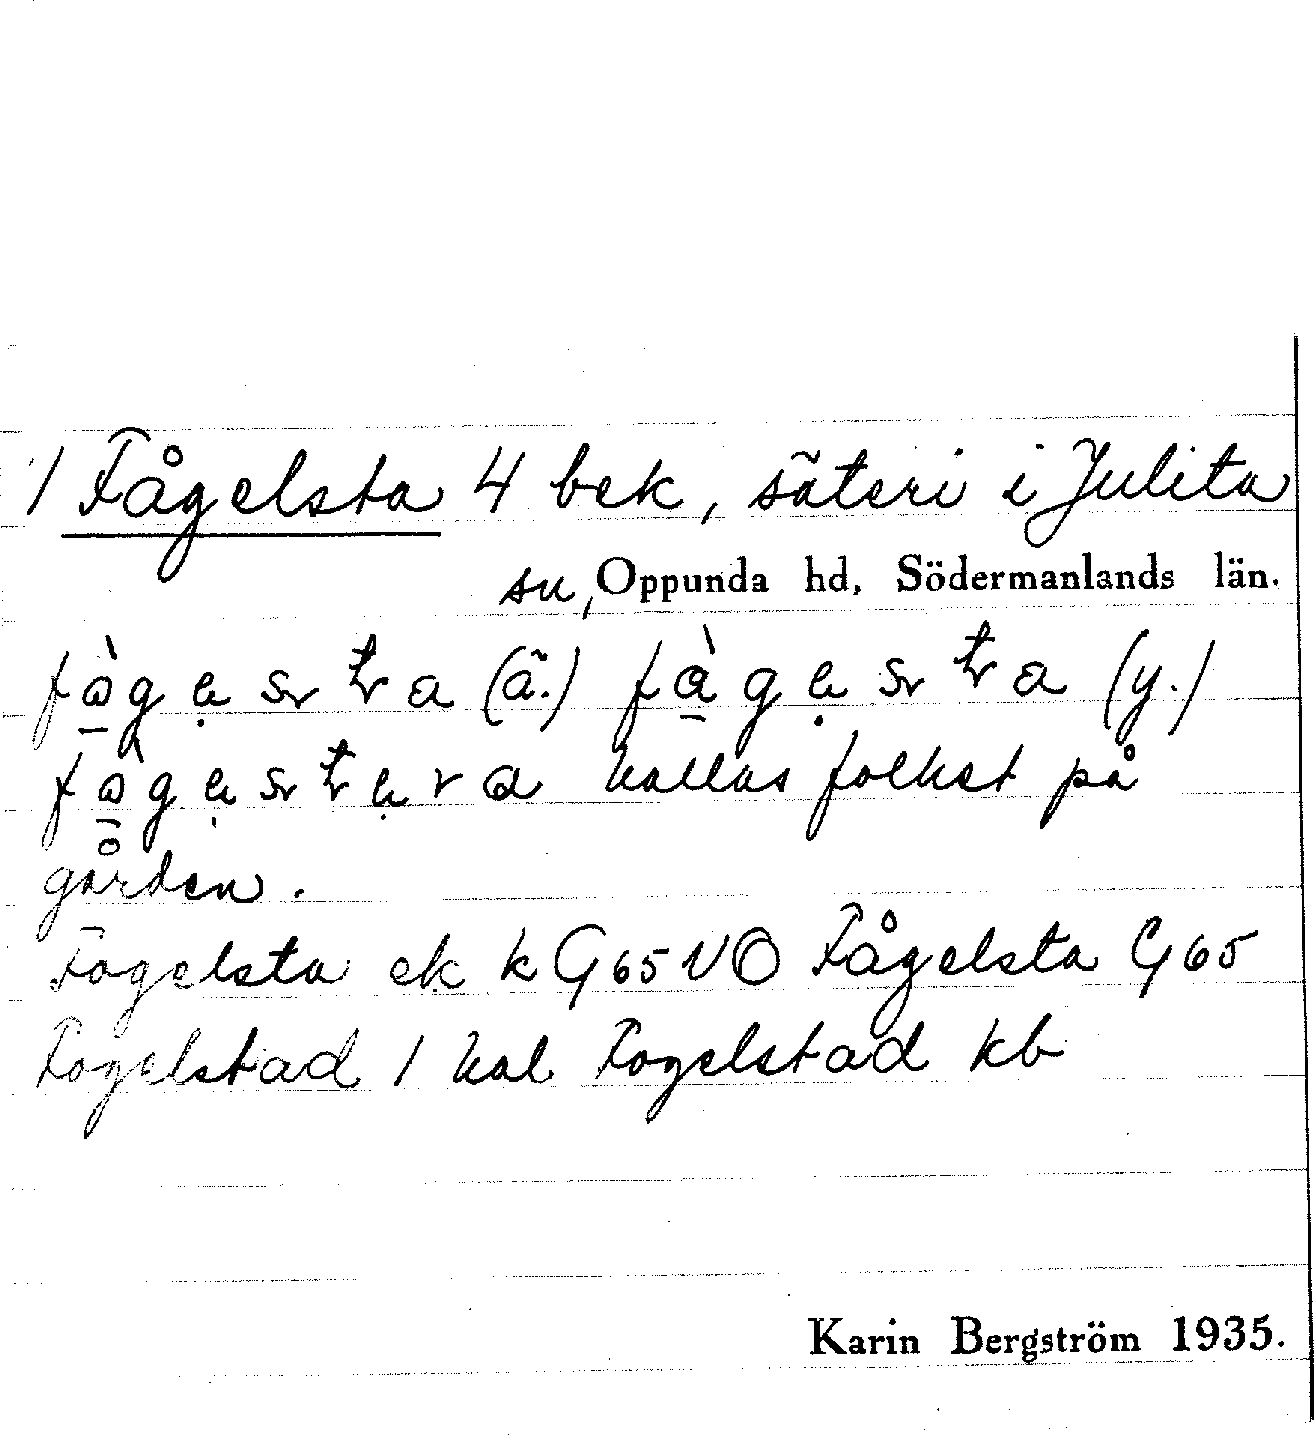 1 Fågelsta 4 bek, säteri i Julita
sn, Oppunda hd, Södermanlands län.
(ä.) (y.)
kallas folket på
gården.
Fogelsta ek k G65 VO Fågelsta G65
Fogelstad 1 kal Fogelstad kb
Karin Bergström 1935.